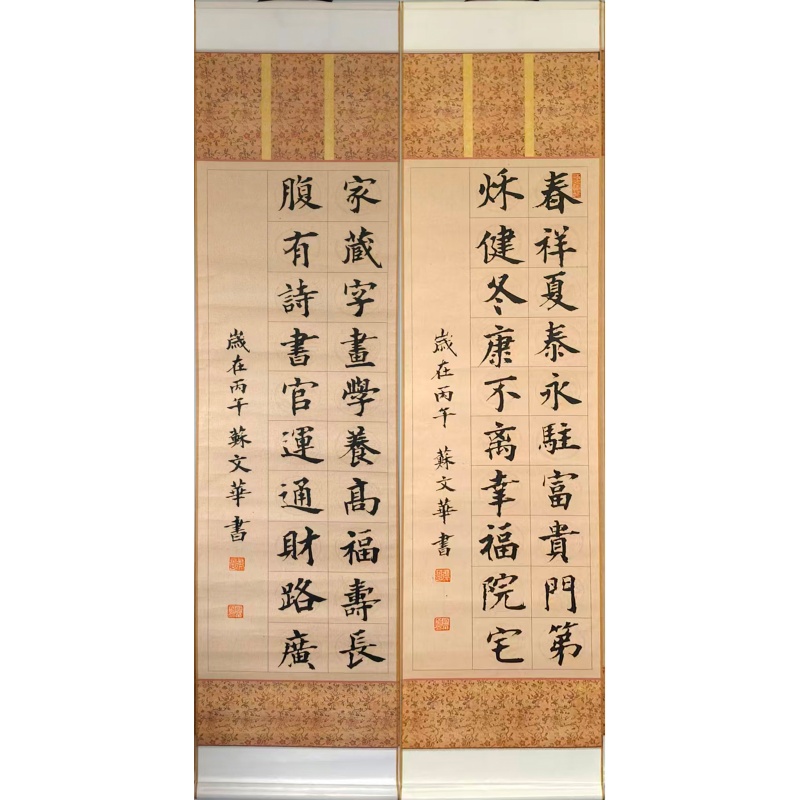 春祥夏泰永駐富貴門第
秌健冬康不离幸福院宅
歲在丙午 蘇文華書
家藏字畫學養高福壽長
腹有詩書官運通財路廣
歲在丙午蘇文華書